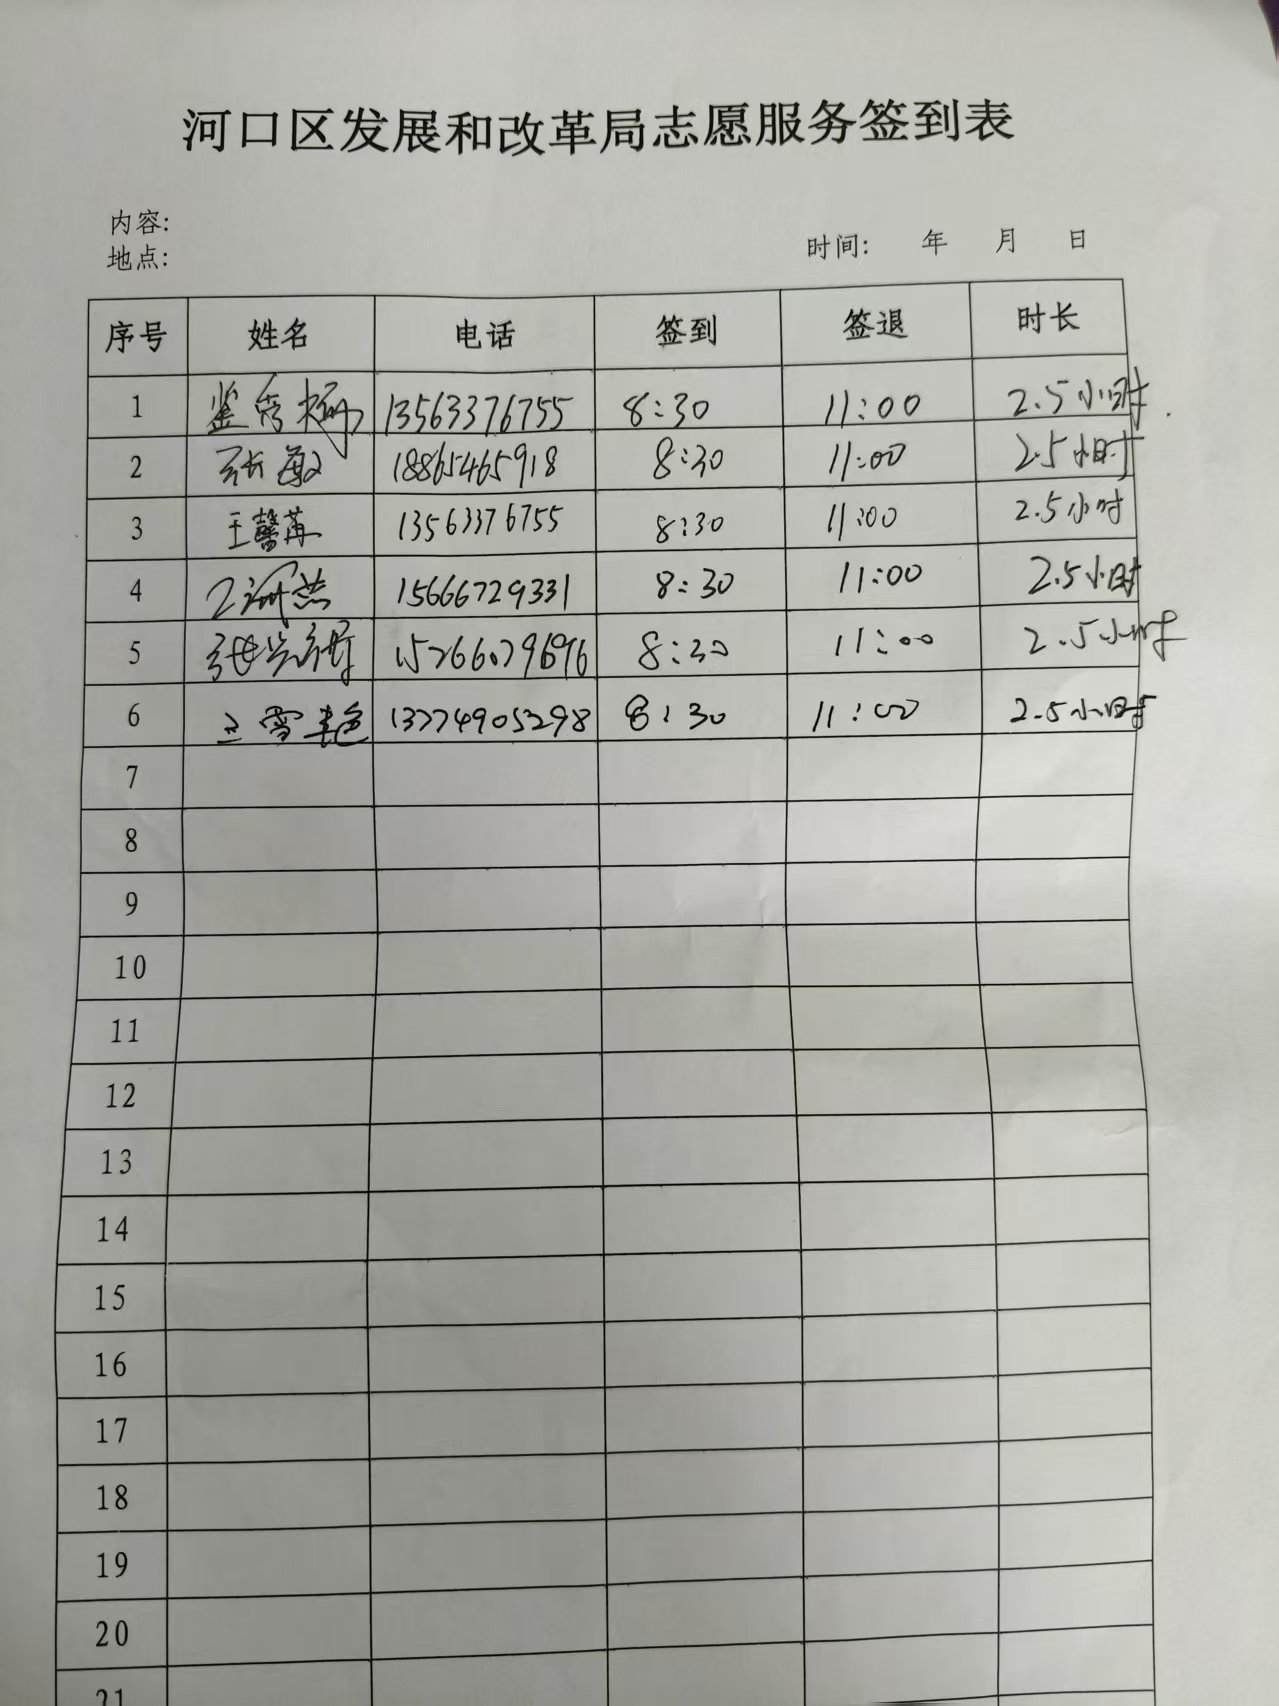 河口区发展和改革局志愿服务签到表
内容:
地点:
时间: 年 月 日
序号 姓名 电话 签到 签退 时长
1 13563376755 8:30 11:00 2.5小时
2 张敏 18865465918 8:30 11:00 2.5小时
3 王馨苒 13563376755 8:30 11:00 2.5小时
4 15666729331 8:30 11:00 2.5小时
5 15266029696 8:30 11:00 2.5小时
6 8:30 11:00 2.5小时
7
8
9
10
11
12
13
14
15
16
17
18
19
20
21